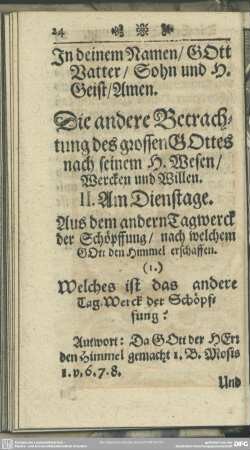 24
In deinem Namen/ GOtt
Vatter/ Sohn und H.
Geist/ Amen.
Die andere Betrach-
tung des grossen GOttes
nach seinem H. Wesen/
Wercken und Willen.
II. Am Dienstage.
Aus dem andern Tagwerck
der Schöpffung/ nach welchem
GOtt den Himmel erschaffen.
(1.)
Welches ist das andere
Tag-Werck der Schöpf-
fung?
Antwort: Da GOtt der HErr
den Himmel gemacht 1. B. Mosis
1. v. 6. 7. 8.
Und